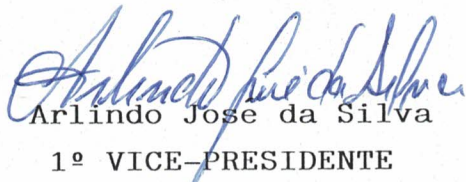 Arlindo José da Silva
Arlindo José da Silva
1º VICE-PRESIDENTE